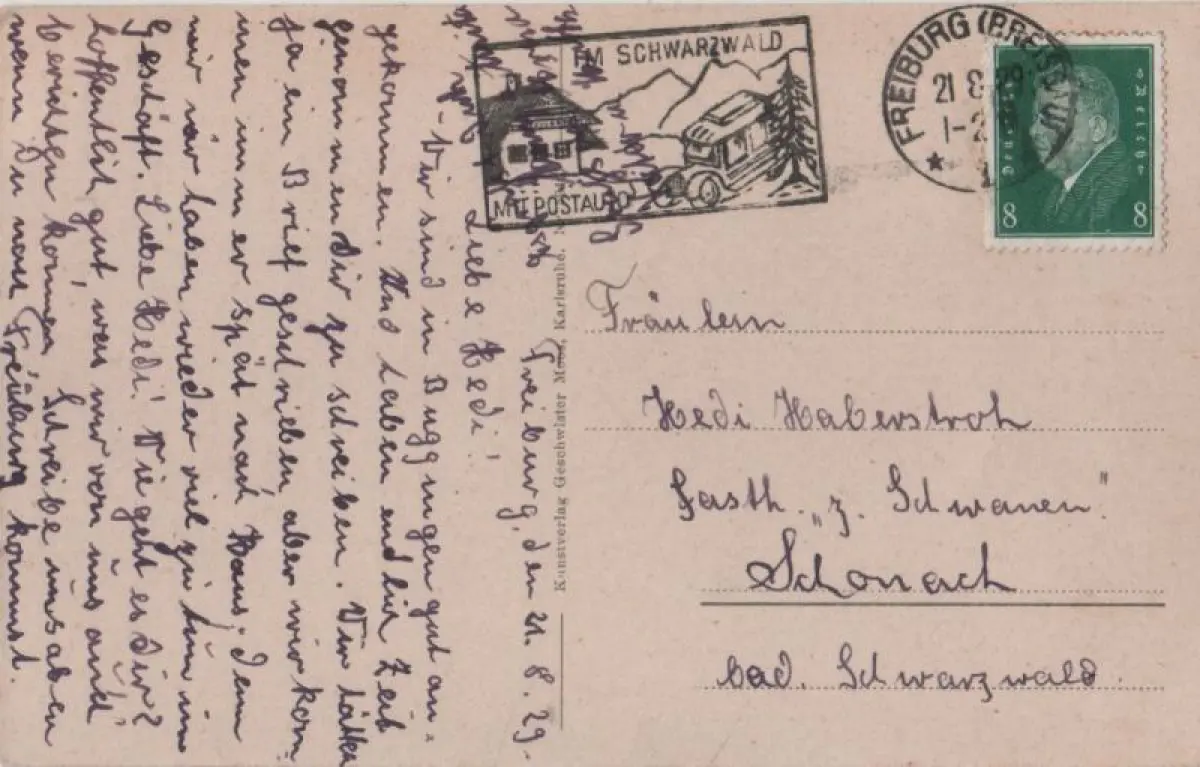 IM SCHWARZWALD
MIT POSTAUTO
FREIBURG (BREISGAU)
21 8 29
1-2
Deutsches Reich
8 8
Freiburg, den 21. 8. 29.
Liebe Hedi!
Wir sind in Buggingen gut an-
gekommen. Und haben endlich Zeit
genommen Dir zu schreiben. Wir hätten
ja ein Brief geschrieben, aber wir kom-
men immer spät nach Haus; denn
wir haben wieder viel zu tun im
Geschäft. Liebe Hedi! Wie geht es Dir?
hoffentlich gut, was wir von uns auch
berichten können. Schreibe uns aber
wenn Du nach Freiburg kommst.
Kunstverlag Geschwister Karlsruhe.
Fräulein
Hedi Haberstroh
Gasth. „z. Schwanen"
Schonach
bad. Schwarzwald